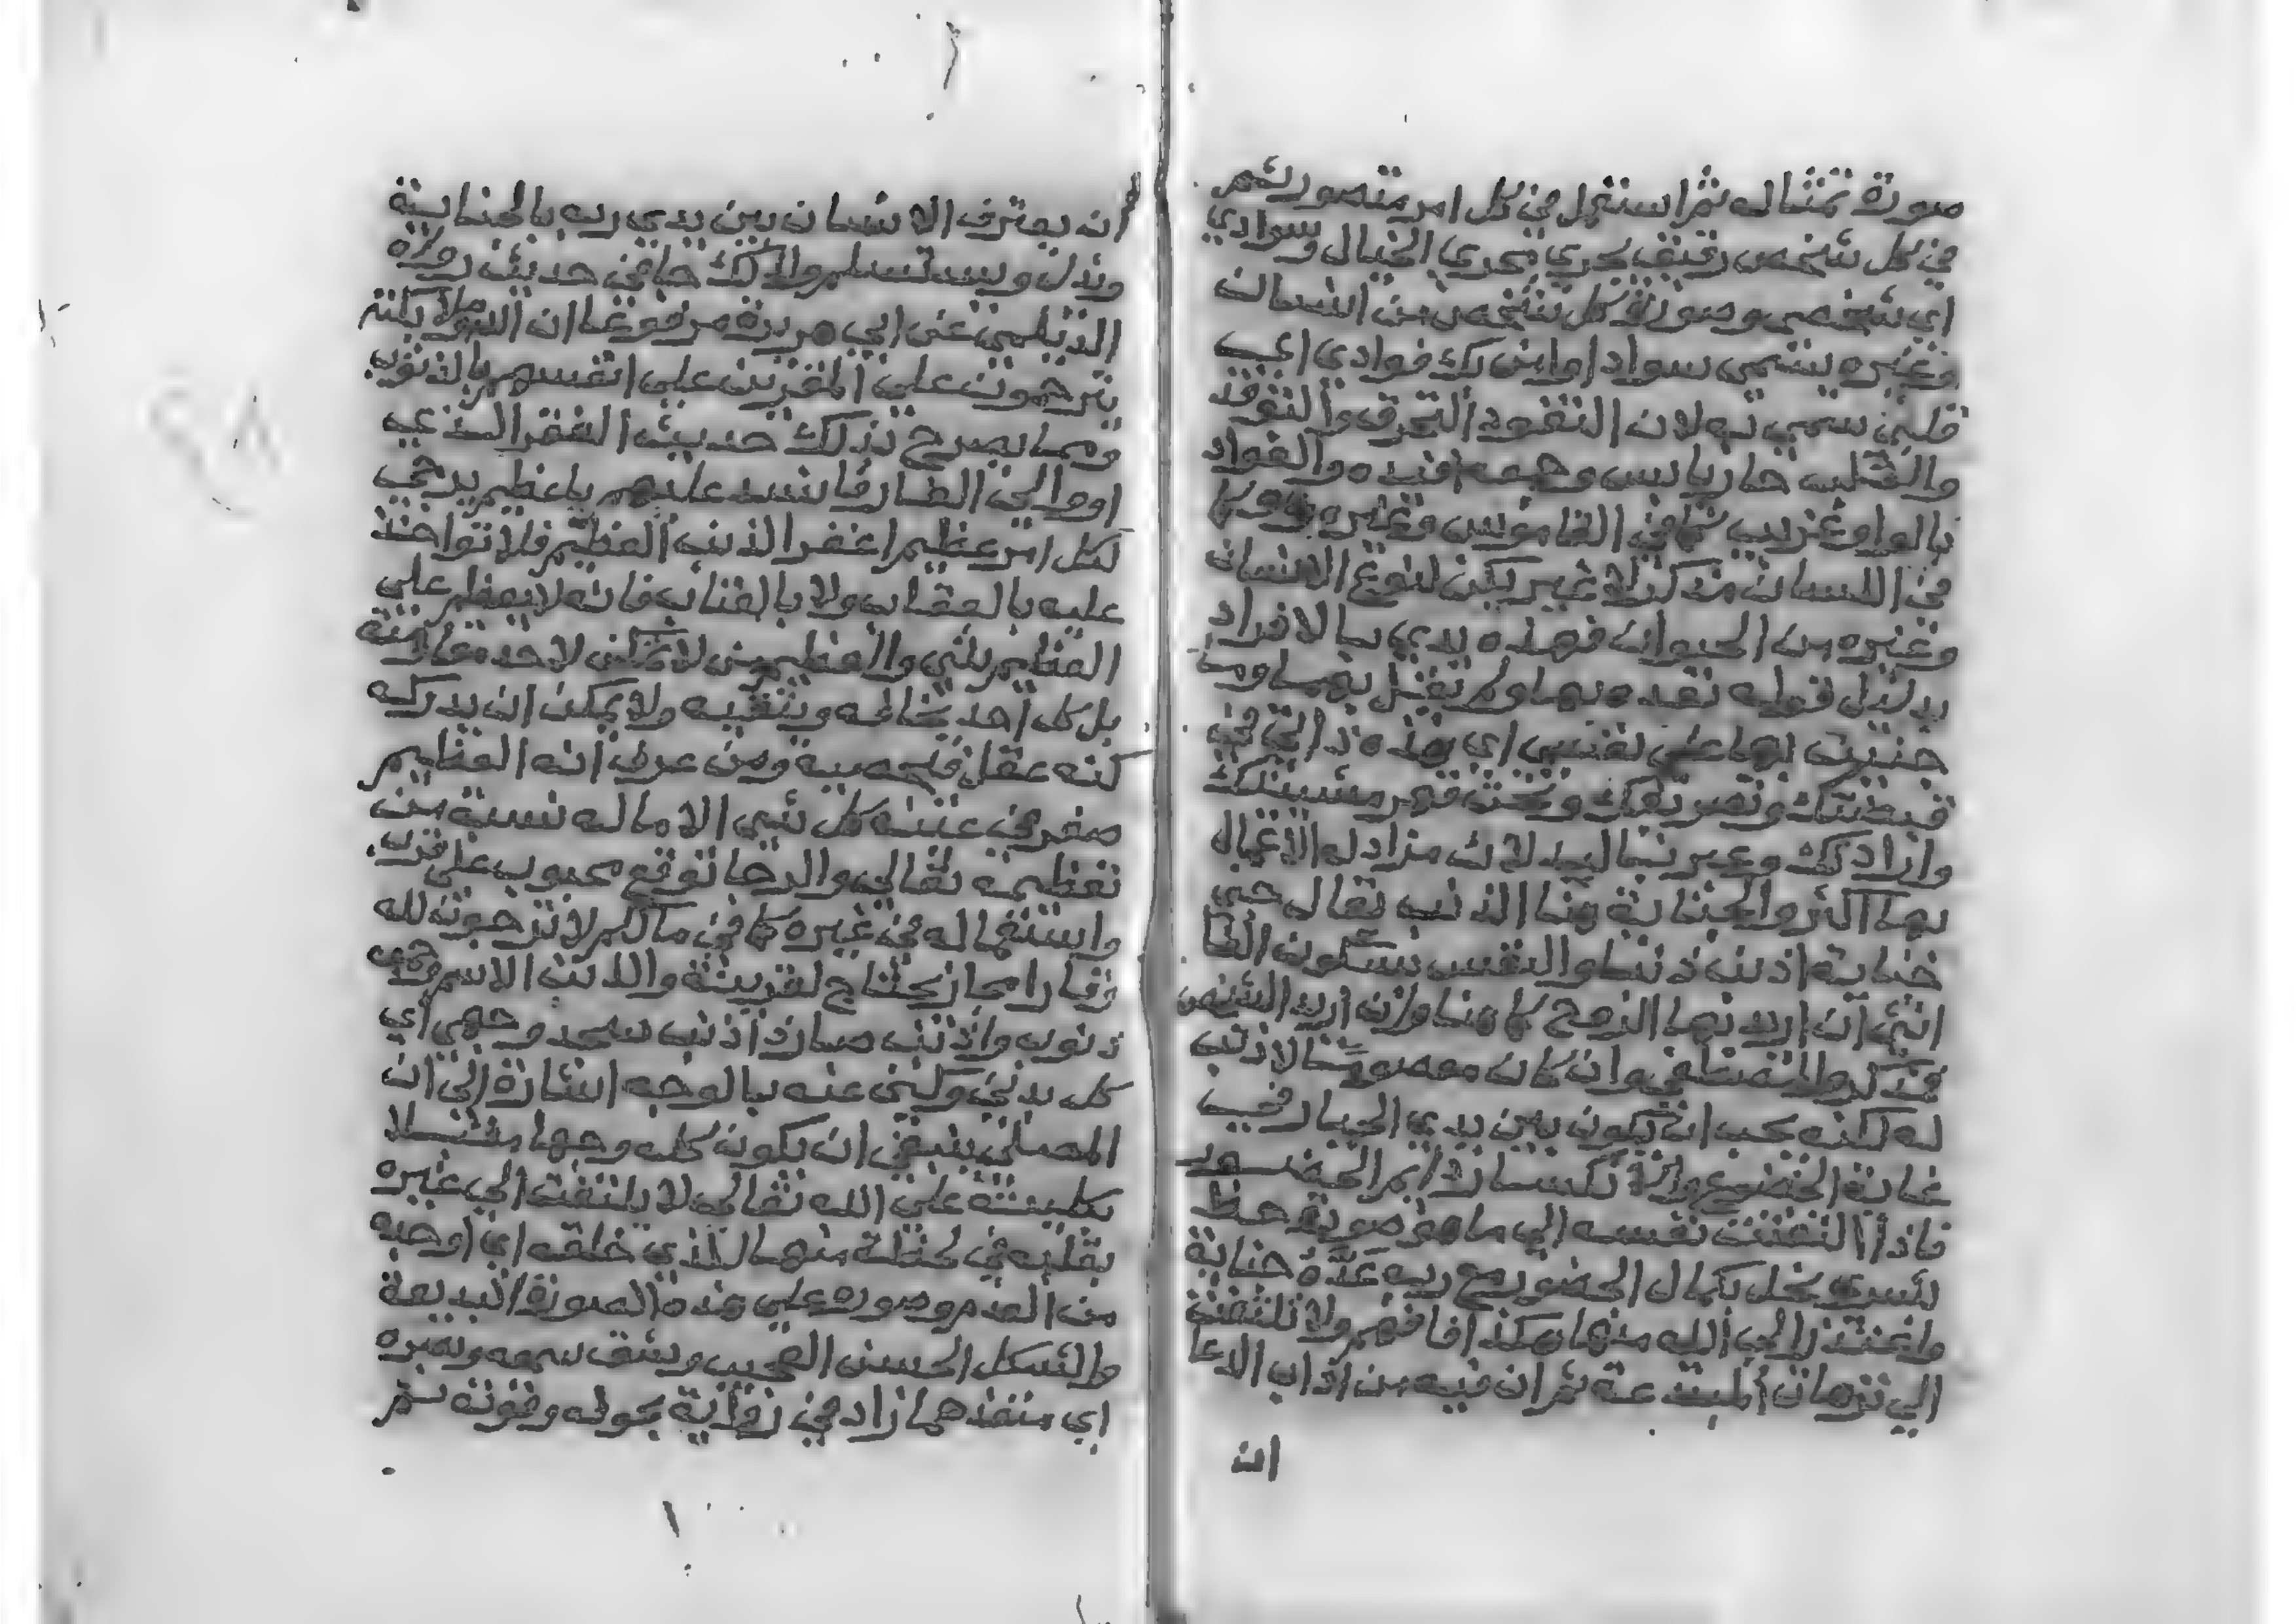 صورة تمثاله ثم استعمل في كل امر متصور ثم
في كل شخص رقيق يجري مجري الخيال وسوادي
اي شخصي وصورة كل شخص من انسان
وغيره يسمي سوادا وامن بك فوادي اي
قلبي سمي به لان التفود التحرق والتوقد
والقلب حار يابس وجمعه افئدة والفواد
بالواو غريب كما في القاموس وغيره
في اللسان مذكر لا غير يكن لنوع الانسان
وغيره من الحيوان فهذه يدي بالافراد
بدليل قوله بعده بها ولم يقل بهما وما
جنيت بها علي نفسي اي هذه ذاتي في
قبضتك وتصريفك وتحت قهر مشيئتك
وارادتك وعبر باليد لان مزاولة الاعمال
بها اكثر والجناية هنا الذنب يقال جني
جناية اذنب ذنبا والنفس بسكون الفا
انثي ان اريد بها الروح كما هنا وان اريد الشخص
فمذكر والمصطفي وان كان معصوما لا ذنب
له لكنه يجب ان يكون بين يدي الجبار في
غاية الخضوع والانكسار ثم الحضور
فاذا التفتت نفسه الي ما هو صورة حظ
بشري يخل بكمال الحضور مع ربه عَدَّهُ جناية
واعتذر الي الله منها هكذا فافهم ولا تلتفت
الي ترهات المبتدعة ثم ان فيه من اداب الدعا
ان
ان يعترف الانسان بين يدي ربه بالجناية
ويذل ويستسلم ولذلك جا في حديث رواه
الديلمي عن ابي هريرة مرفوعا ان الله وملائكته
يترحمون علي المقرين علي انفسهم بالذنوب
ومما يصرح بذلك حديث النفر الذي
اووا الي الغار فانسد عليهم يا عظيم يرجي
لكل امر عظيم اغفر الذنب العظيم فلا تواخذ
عليه بالعقاب ولا بالعتاب فانه لا يعظم علي
العظيم شي والعظيم من لا يمكن لاحد مقاومته
بل كل احد يخافه ويتقيه ولا يمكن ان يدرك
كنه عقل ومن عرف انه العظيم
صغر في عينه كل شي الا ماله نسبة من
تعظيمه تعالي والرجا توقع محبوب علي قرب
واستعماله في غيره كما في ما لكم لا ترجون لله
وقارا مجاز يحتاج لقرينة والذنب الاثم وجمعه
ذنوب واذنب صار ذا ذنب سجد وجهي اي
كل بدني وكني عنه بالوجه اشارة الي ان
المصلي ينبغي ان يكون كله وجها مقبلا
بكليته علي الله تعالي لا يلتفت الي غيره
بقلبه في لحظة منها للذي خلقه اي اوجده
من العدم وصوره علي هذه الصورة البديعة
والشكل الحسن العجيب وشق سمعه وبصره
اي منفذهما زاد في رواية بحوله وقوته ثم